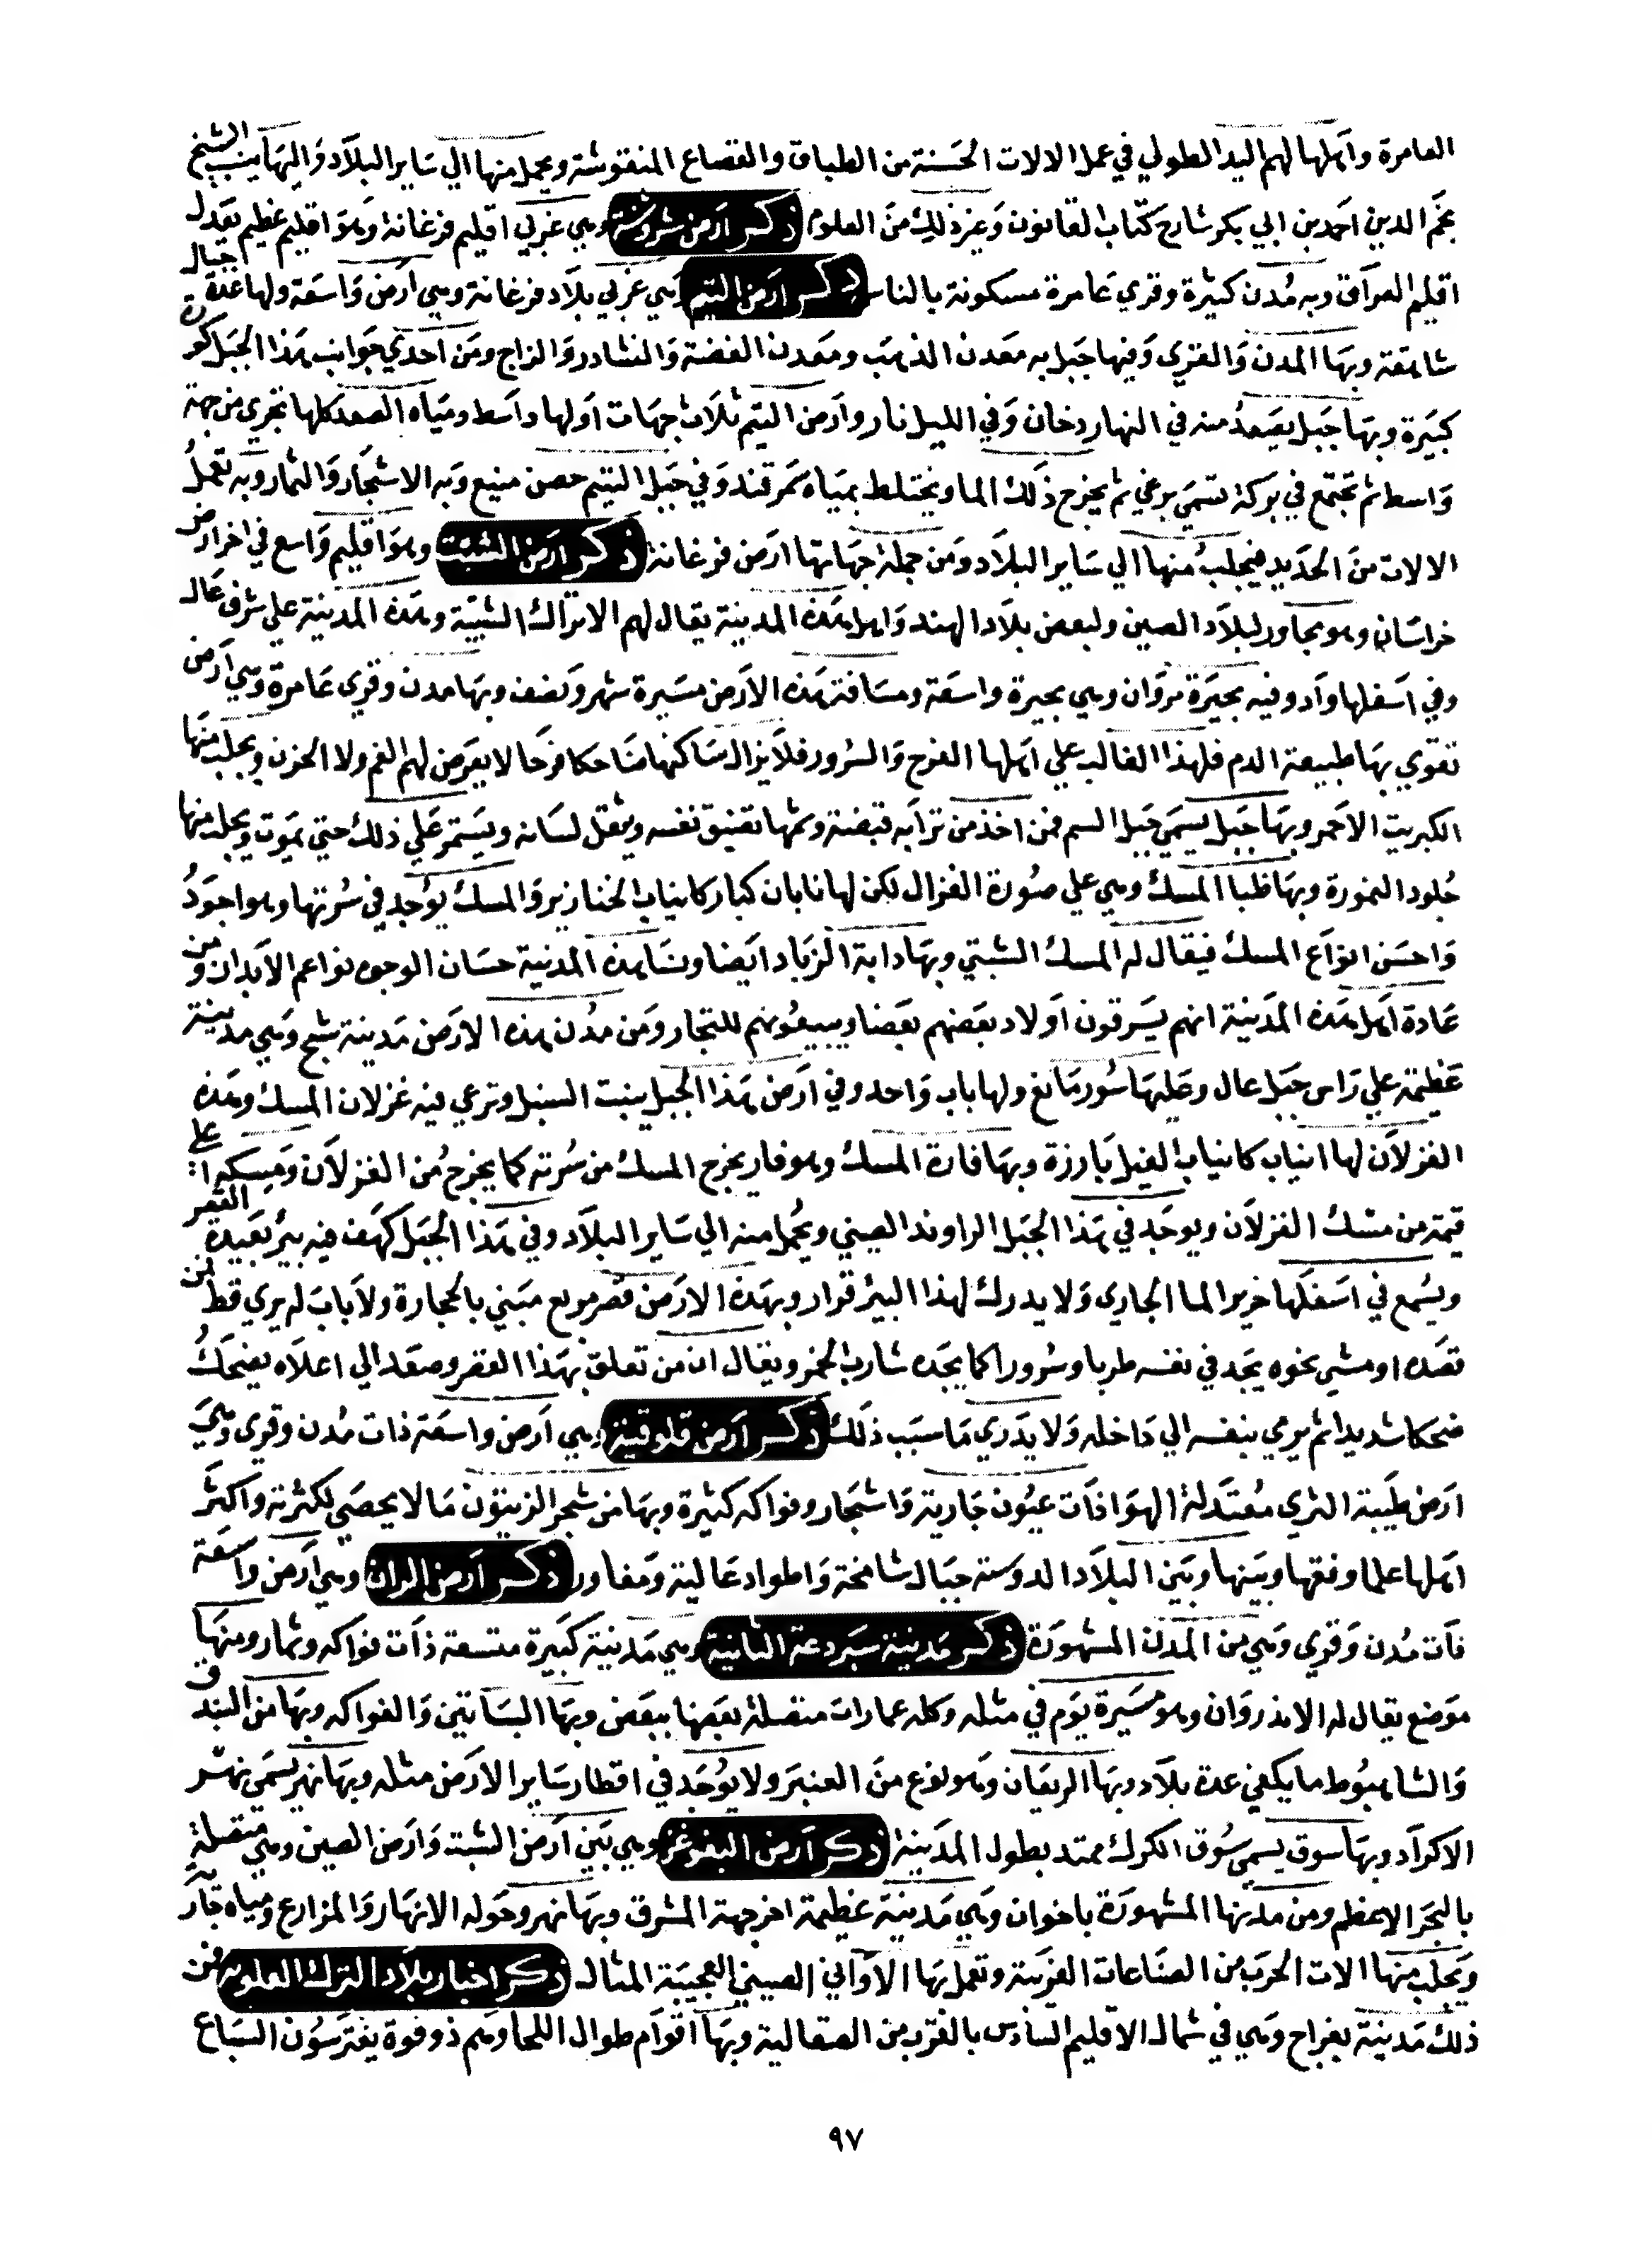 العامرة واهلها لهم اليد الطولي في عمل الالات الحسنة من الطباق والقصاع المنقوشة ويحمل منها الي ساير البلاد واليها ينسب الشيخ
نجم الدين احمد بن ابي بكر شارح كتاب القانون وغير ذلك من العلوم ذكر ارض شروشنة وهي غربي اقليم فرغانة وهو اقليم عظيم يعدل
اقليم العراق وبه مدن كثيرة وقري عامرة مسكونة بالناس ذكر ارض التيم وهي غربي بلاد فرغانة وهي ارض واسعة ولها عدة جبال
شاهقة وبها المدن والقري وفيها جبل به معدن الذهب ومعدن الفضة والنشادر والزاج ومن احدي جوانب هذا الجبل كورة
كبيرة وبها جبل يصعد منه في النهار دخان وفي الليل نار وارض التيم ثلاث جهات اولها واسط ومياه الصغد كلها تجري من جهة
واسط ثم تجتمع في بركة تسمي برغي ثم يخرج ذلك الما ويختلط بمياه سمرقند وفي جبل التيم حصن منيع وبه الاشجار والثمار وبه تعمل
الالات من الحديد فيجلب منها الي ساير البلاد ومن جملة جهاتها ارض فرغانة ذكر ارض التبت وهو اقليم واسع في اخر ارض
خراسان وهو مجاور لبلاد الصين ولبعض بلاد الهند واهل هذه المدينة يقال لهم الاتراك التبتية وهذه المدينة علي شرف عال
وفي اسفلها واد وفيه بحيرة بروان وهي بحيرة واسعة ومسافة هذه الارض مسيرة شهر ونصف وبها مدن وقري عامرة وهي ارض
تقوي بها طبيعة الدم فلهذا الغالب علي اهلها الفرح والسرور فلا يزال ساكنها ضاحكا فرحا لا يعرض لهم الغم ولا الحزن ويجلب منها
الكبريت الاحمر وبها جبل يسمي جبل السم فمن اخذ من ترابه قبضة وشمها تضيق نفسه ويثقل لسانه ويستمر علي ذلك حتي يموت ويجلب منها
جلود النمورة وبها ظبا المسك وهي علي صورة الغزال لكن لها نابان كبار كانياب الخنازير والمسك يوجد في سرتها وهو اجود
واحسن انواع المسك فيقال له المسك التبتي وبها دابة الزباد ايضا ونسا هذه المدينة حسان الوجوه نواعم الابدان ومن
عادة اهل هذه المدينة انهم يسرقون اولاد بعضهم بعضا ويبيعونهم للتجار ومن مدن هذه الارض مدينة شبخ وهي مدينة
عظيمة علي راس جبل عال وعليها سور مانع ولها باب واحد وفي ارض هذا الجبل ينبت السنبل وترعي فيه غزلان المسك وهذه
الغزلان لها انياب كانياب الفيل بارزة وبها فارة المسك وهو فار يخرج المسك من سرته كما يخرج من الغزلان ومسكها اعلا
قيمة من مسك الغزلان ويوجد في هذا الجبل الراوند الصيني ويحمل منه الي ساير البلاد وفي هذا الجبل كهف فيه بير بعيدة القعر
ويسمع في اسفلها خرير الما الجاري ولا يدرك لهذا البير قرار وبهذه الارض قصر مربع مبني بالحجارة ولا باب له يري قط لمن
قصده او مشي نحوه يجد في نفسه طربا وسرورا كما يجده شارب الخمر ويقال ان من تعلق بهذا القصر وصعد الي اعلاه يضحك
ضحكا شديدا ثم يرمي بنفسه الي داخله ولا يدري ما سبب ذلك ذكر ارض قلوقية وهي ارض واسعة ذات مدن وقري وهي
ارض طيبة الثري معتدلة الهوا ذات عيون جارية واشجار وفواكه كثيرة وبها من شجر الزيتون ما لا يحصي لكثرته واكثر
اهلها علما وفقها وبينها وبين البلاد الدوسته جبال شامخة واطواد عالية ومغاور ذكر ارض الران وهي ارض واسعة
ذات مدن وقري وهي من المدن المشهورة ذكر مدينة سبردعة الثانية وهي مدينة كبيرة متسعة ذات فواكه وثمار ومنها
موضع يقال له الاندروان وهو مسيرة يوم في مثله وكله عمارات متصلة بعضها ببعض وبها البساتين والفواكه وبها من البندق
والشاهبوط ما يكفي عدة بلاد وبها الريغان وهو نوع من العنبر ولا يوجد في اقطار ساير الارض مثله وبها نهر يسمي نهر
الاكراد وبها سوق يسمي سوق الكرك ممتد بطول المدينة ذكر ارض البغوغز وهي بين ارض التبت وارض الصين وهي متصلة
بالبحر الاعظم ومن مدنها المشهورة باخوان وهي مدينة عظيمة اخر جهة المشرق وبها نهر وحوله الانهار والمزارع ومياه جارية
ويجلب منها الات الحرب من الصناعات الغريبة وتعمل بها الاواني الصيني العجيبة المثال ذكر اخبار بلاد الترك العلوية فمن
ذلك مدينة بغراج وهي في شمال الاقليم السادس بالقرب من الصقالبة وبها اقوام طوال اللحا وهم ذو قوة يفترسون السباع
٩٧